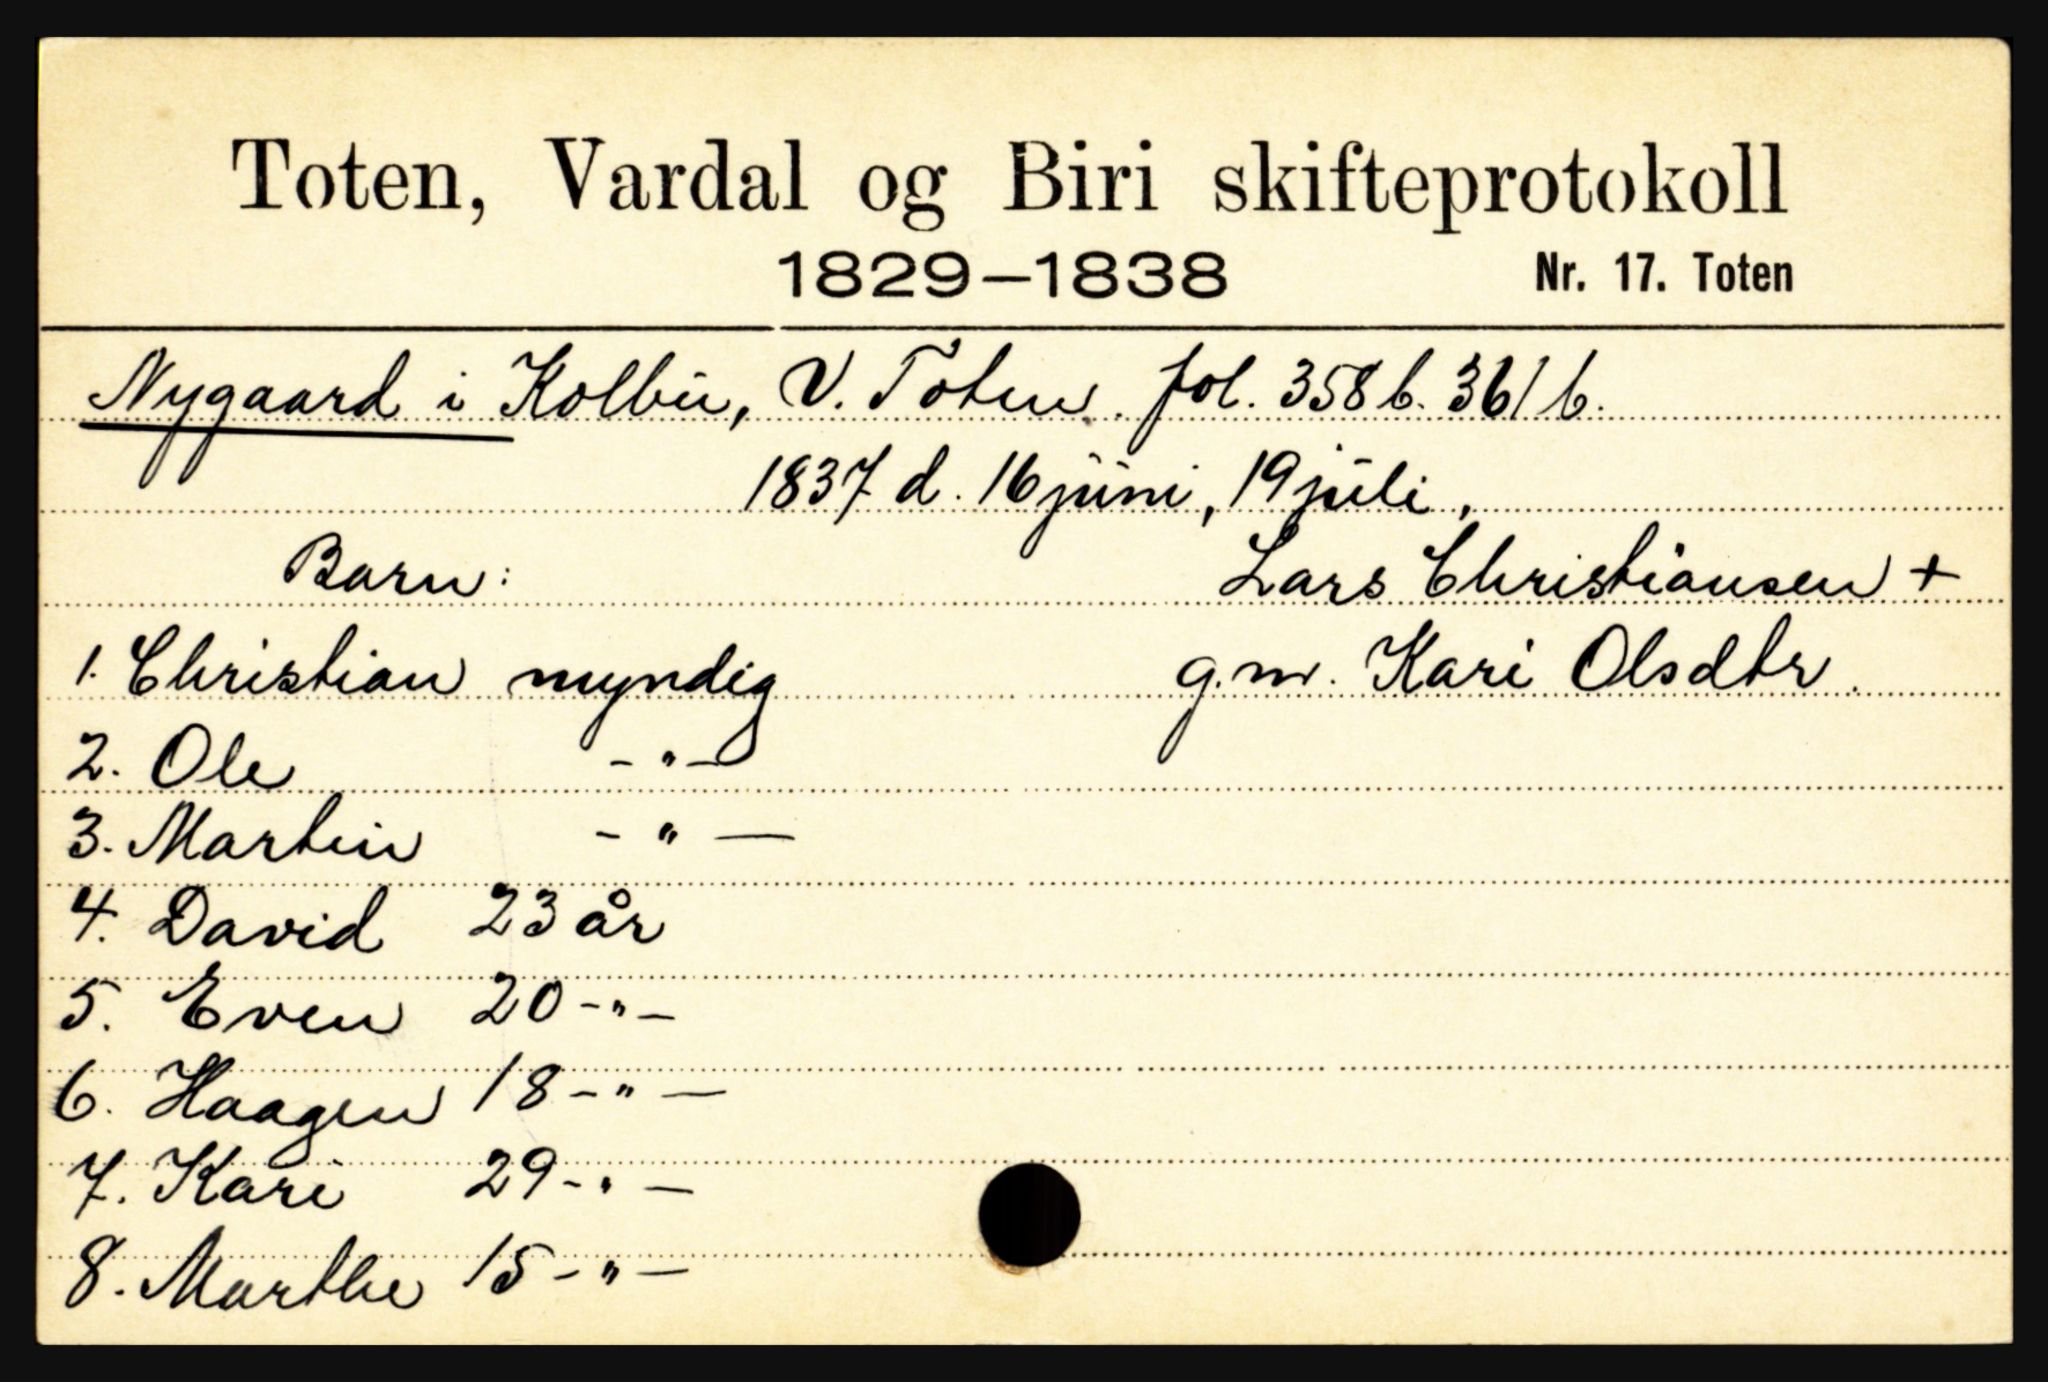 Toten, Vardal og Biri skifteprotokoll
1829–1838 Nr. 17. Toten
Nygaard i Kolbu, V. Toten. fol. 358 b. 361 b.
1837 d. 16 juni, 19 juli,
Barn: Lars Christiansen +
1. Christian myndig g.m. Kari Olsdtr.
2. Ole -"-
3. Martin -"-
4. David 23 år
5. Even 20 -"-
6. Haagen 18 -"-
7. Kari 29 -"-
8. Marthe 15 -"-